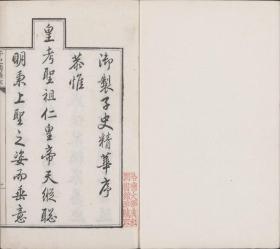 御製子史精華序
恭惟
皇考聖祖仁皇帝天縱聰
明東上聖之姿而垂意